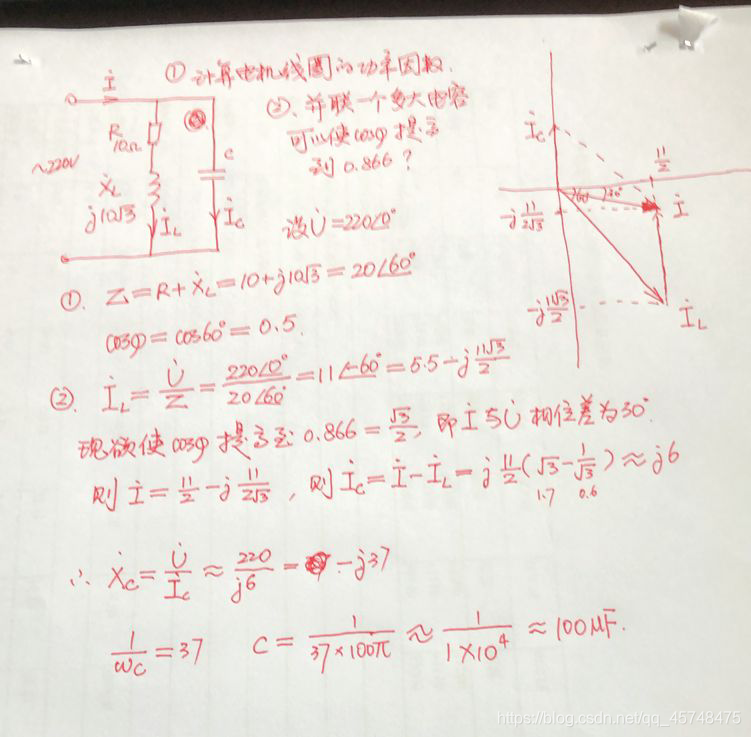 ① 计算电机线圈的功率因数.
②、并联一个多大电容
可以使cosφ提高
到 0.866 ?
İ
R
10Ω
C
~220V
ẊL
j10√3
İL
İC
设U̇=220∠0°
İC
11/2
60°
30°
İ
-j 11/2√3
-j 11√3/2
İL
①. Z=R+ẊL=10+j10√3=20∠60°
cosφ=cos60°=0.5.
②. İL=U̇/Z=220∠0°/20∠60°=11∠-60°=5.5-j 11√3/2
现欲使cosφ提高至0.866=√3/2, 即İ与U̇相位差为30°.
则İ=11/2-j 11/2√3, 则İC=İ-İL=j 11/2(√3-1/√3)≈j6
1.7 0.6
∴ ẊC=U̇/İC≈220/j6=-j37
1/ωC=37 C=1/37×100π≈1/1×10⁴≈100μF.
https://blog.csdn.net/qq_45748475